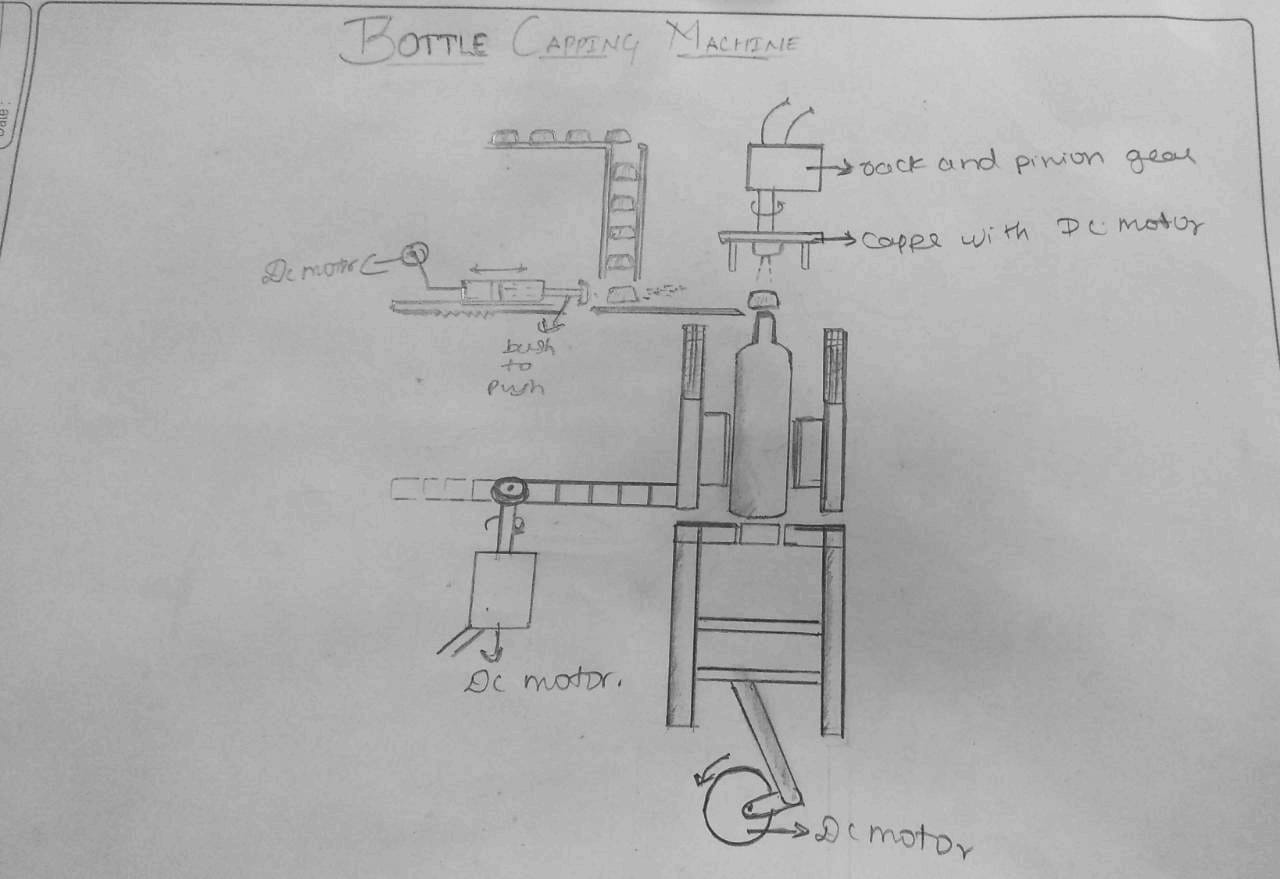 Date:
BOTTLE CAPPING MACHINE
rack and pinion gear
cappe with DC motor
Dc motor
bush
to
push
Dc motor.
Dc motor